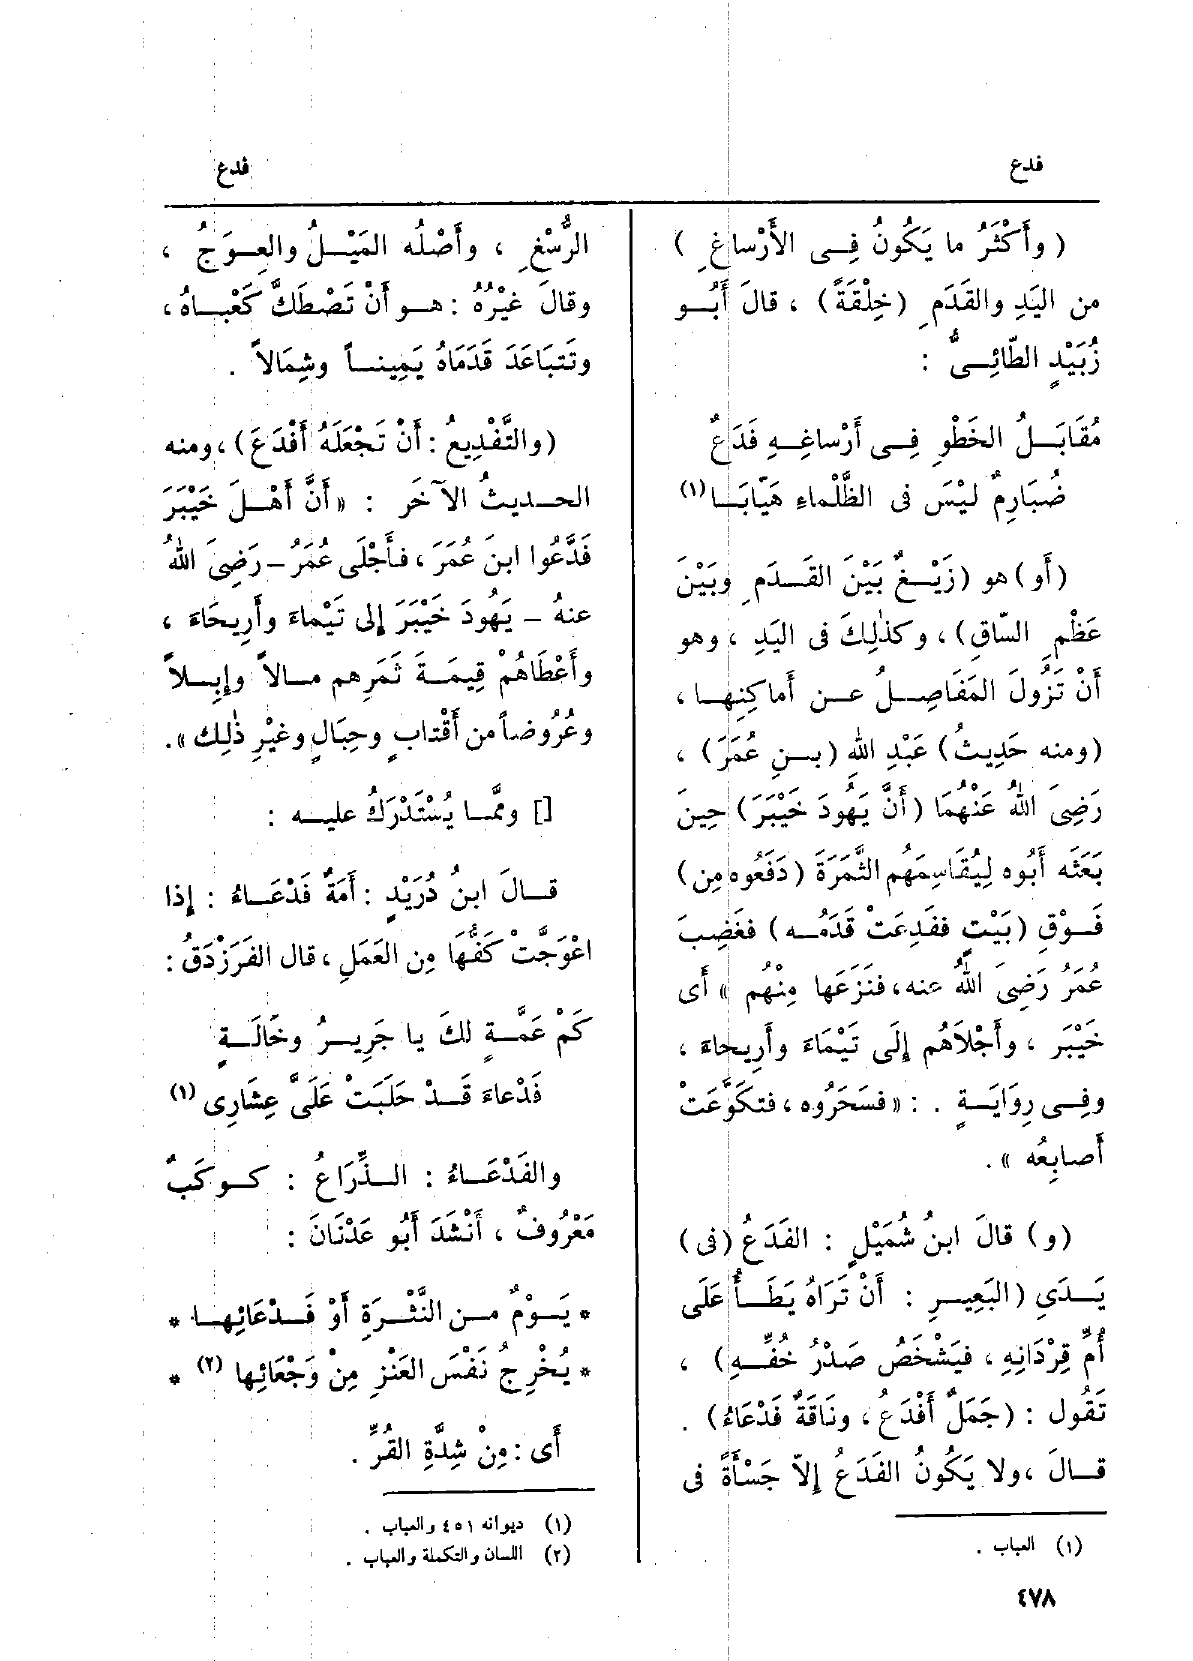 فدع
فدع
( وأَكْثَرُ ما يَكُونُ فِى الأَرْساغِ )
من اليَدِ والقَدَمِ (خِلْقَةً) ، قالَ أَبُو
زُبَيْدٍ الطّائِىُّ :
مُقَابَلُ الخَطْوِ فِى أَرْساغِهِ فَدَعٌ
ضُبَارِمٌ لَيْسَ فى الظَّلْماءِ هَيّابَا (١)
(أَو) هو (زَيْغٌ بَيْنَ القَدَمِ وبَيْنَ
عَظْمِ السّاقِ) ، وكذٰلِكَ فى اليَدِ ، وهو
أَنْ تَزُولَ المَفَاصِلُ عن أَماكِنِها ،
(ومنه حَدِيثُ) عَبْدِ اللهِ (بنِ عُمَرَ) ،
رَضِىَ اللهُ عَنْهُمَا (أَنَّ يَهُودَ خَيْبَرَ) حِينَ
بَعَثَه أَبُوه لِيُقَاسِمَهُم الثَّمَرَةَ (دَفَعُوه مِن)
فَوْقِ (بَيْتٍ ففَدِعَتْ قَدَمُه) فغَضِبَ
عُمَرُ رَضِىَ اللهُ عنه، فنَزَعَها مِنْهُم » أَى
خَيْبَر ، وأَجْلاَهُم إِلَى تَيْمَاءَ وأَرِيحاءَ ،
وفِى رِوَايَةٍ . : « فسَحَرُوه ، فتكَوَّعَتْ
أَصابِعُه » .
(و) قالَ ابنُ شُمَيْلٍ : الفَدَعُ (فى)
يَدَىِ (البَعِيرِ : أَنْ تَرَاهُ يَطَأُ عَلَى
أُمِّ قِرْدَانِهِ ، فيَشْخَصُ صَدْرُ خُفِّهِ) ،
تَقُول : (جَمَلٌ أَفْدَعُ ، ونَاقَةٌ فَدْعَاءُ) .
قالَ ، ولا يَكُونُ الفَدَعُ إِلاّ جَسْأَةً فى
(١) العباب .
٤٧٨
الرُّسْغِ ، وأَصْلُه المَيْلُ والعِوَجُ ،
وقالَ غيْرُهُ : هو أَنْ تَصْطَكَّ كَعْبَاهُ ،
وتَتبَاعَدَ قَدَمَاهُ يَمِيناً وشِمَالاً .
(والتَّفْدِيعُ : أَنْ تَجْعَلَهُ أَفْدَعَ) ، ومنه
الحديثُ الآخَر : « أَنَّ أَهْلَ خَيْبَرَ
فَدَّعُوا ابنَ عُمَرَ ، فأَجْلَى عُمَرُ – رَضِىَ اللهُ
عنهُ – يَهُودَ خَيْبَرَ إِلى تَيْمَاءَ وأَرِيحَاءَ ،
وأَعْطَاهُمْ قِيمَةَ ثَمَرِهم مالاً وإِبِلاً
وعُرُوضاً من أَقْتابٍ وحِبَالٍ وغيْرِ ذٰلِك » .
[] وممَّا يُسْتَدْرَكُ عليه :
قالَ ابنُ دُرَيْدٍ : أَمَةٌ فَدْعَاءُ : إِذا
اعْوَجَّتْ كَفُّهَا مِن العَمَلِ ، قال الفَرَزْدَقُ :
كَمْ عَمَّةٍ لكَ يا جَرِيرُ وخَالَةٍ
فَدْعاءَ قَدْ حَلَبَتْ عَلَىَّ عِشَارِى (١)
والفَدْعَاءُ : الذِّرَاعُ : كوكَبٌ
مَعْرُوفٌ ، أَنْشَدَ أَبُو عَدْنَانَ :
* يَوْمٌ من النَّثْرَةِ أَوْ فَدْعَائِها *
* يُخْرِجُ نَفْسَ العَنْزِ مِنْ وَجْعَائِها (٢) *
أَى : مِنْ شِدَّةِ القُرِّ .
(١) ديوانه ٤٥١ والعباب .
(٢) اللسان والتكملة والعباب .